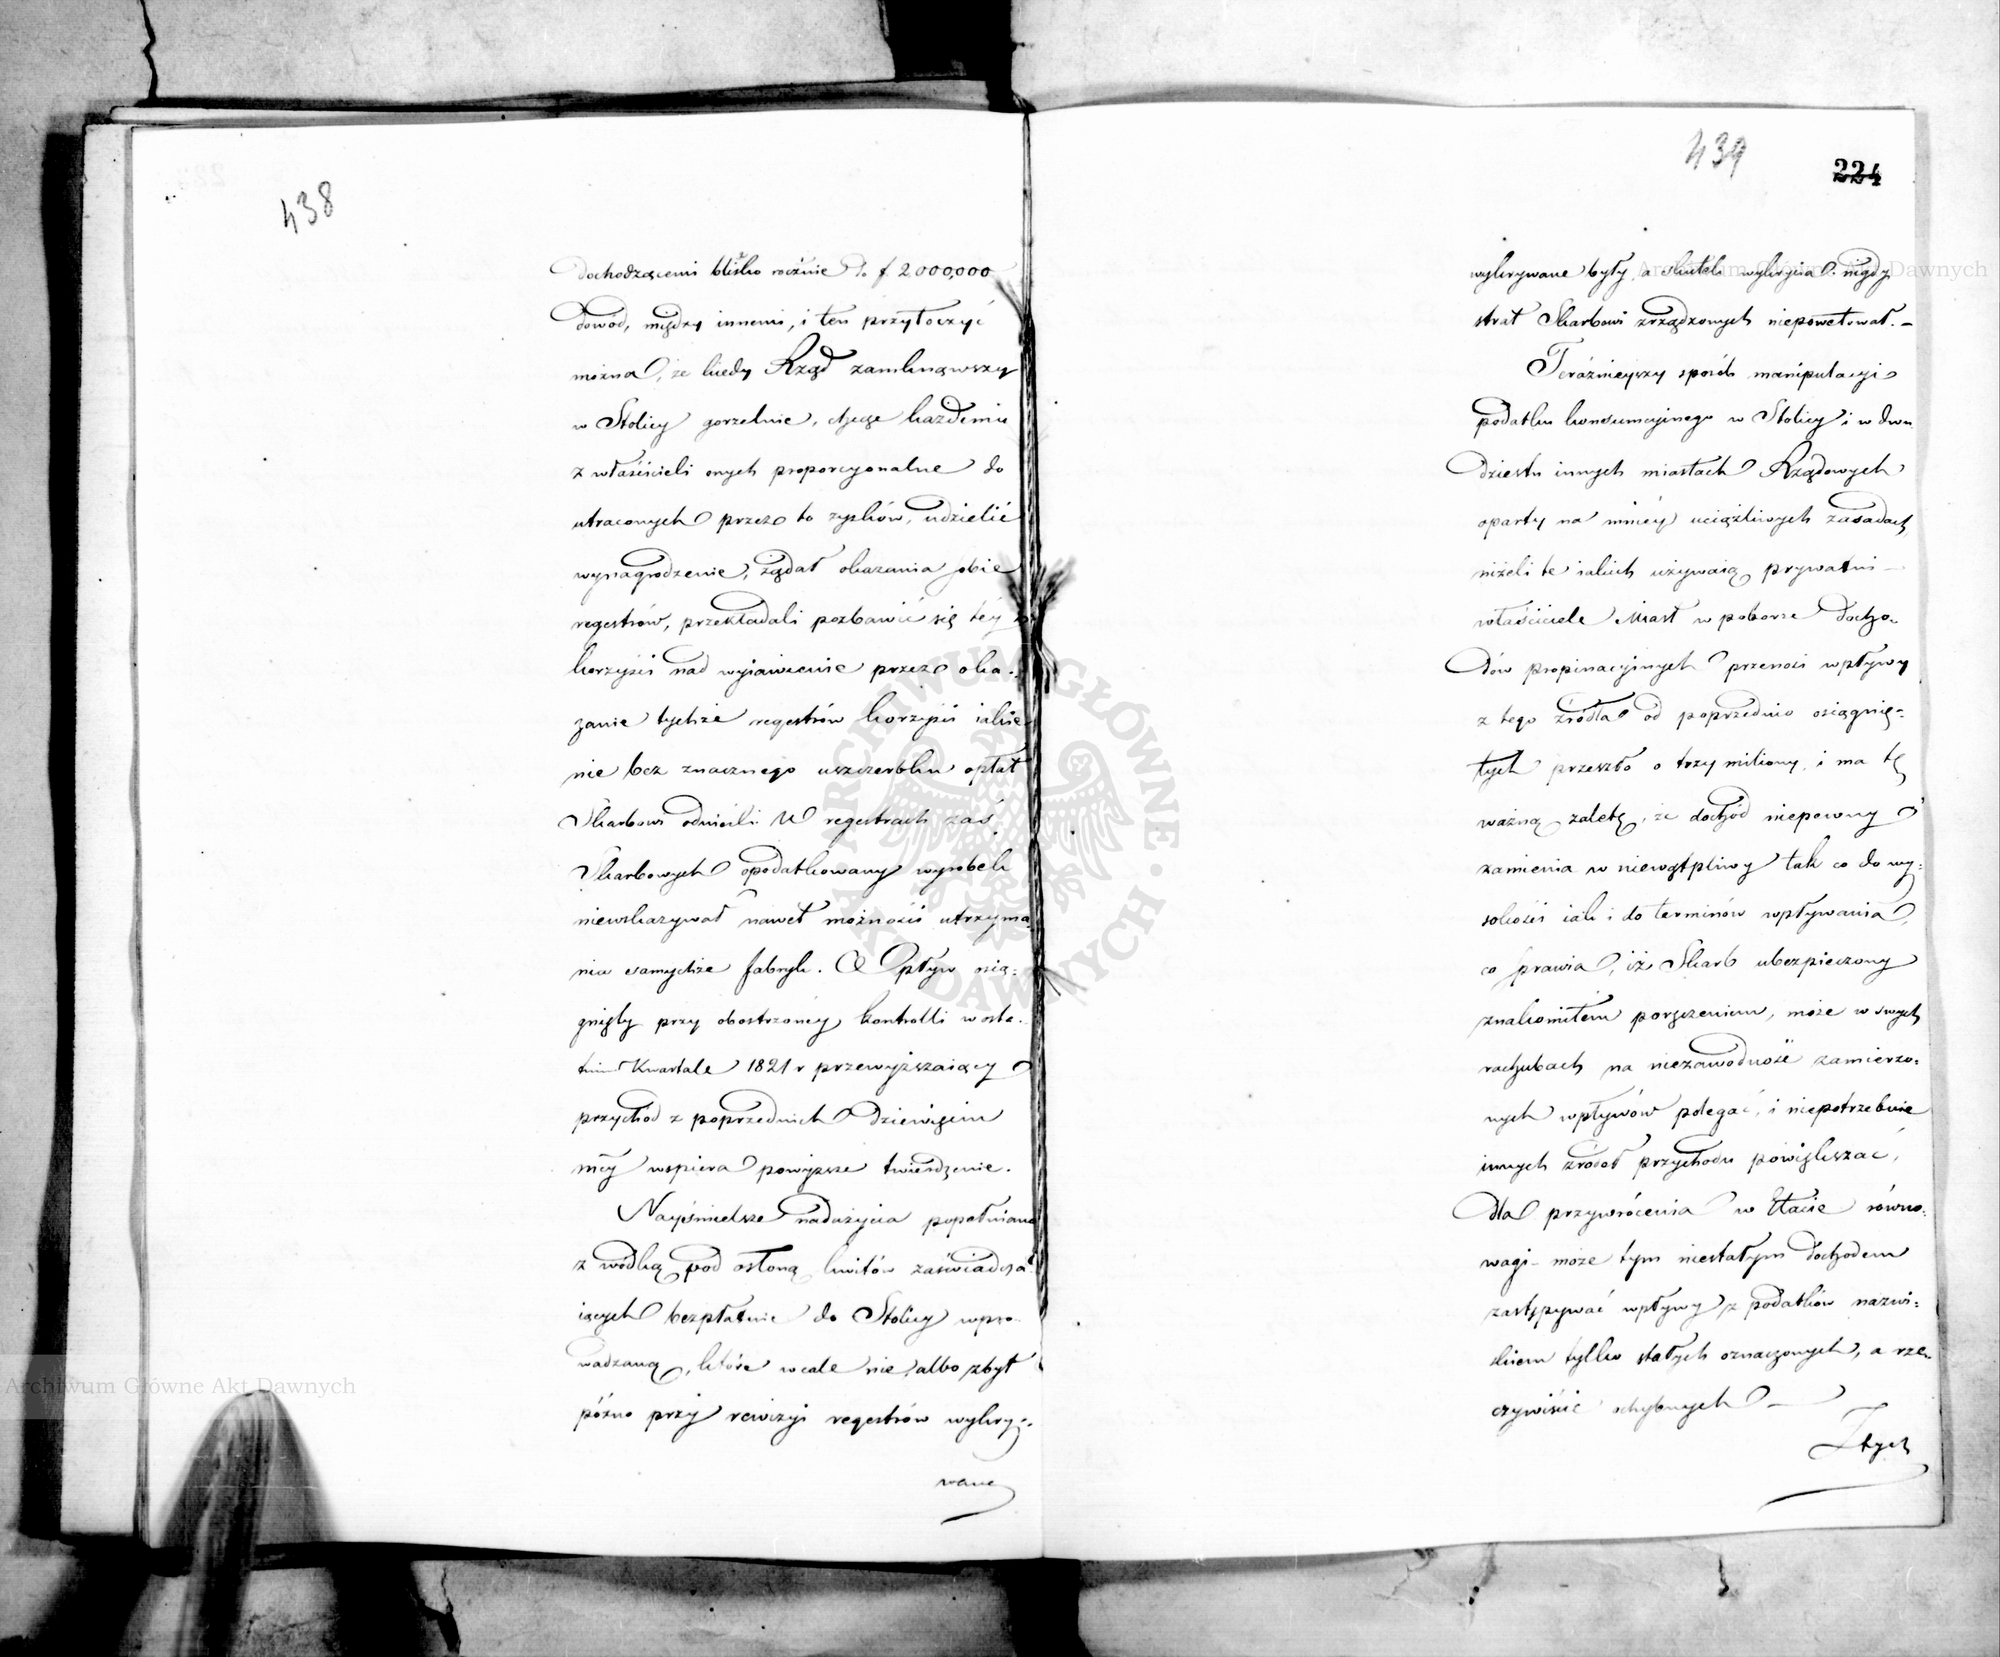 438
dochodzącemi blisko rocznie do f 2000,000
dowód, między innemi, i ten przytoczyć
można, że kiedy Rząd zamknąwszy
w Stolicy gorzelnie, chcąc każdemu
z właścicieli onych proporcyonalne do
utraconych przez to zysków, udzielić
wynagrodzenie, żądał okazania sobie
regestrów, przekładali pozbawić się tey
korzyści nad wyiawienie przez oka-
zanie tychże regestrów korzyści iakie
nie bez znacznego uszczerbku opłat
Skarbowi odnieśli. W regestrach zaś
Skarbowych opodatkowany wyrobek
niewskazywał nawet możności utrzyma-
nia samychże fabryk. Wpływ osią-
gnięty przy obostrzoney kontrolli w osta-
tnim Kwartale 1821 r przewyższaiący
przychód z poprzednich dziewięciu
mcy wspiera powyższe twierdzenie.
Nayśmielsze nadużycia popełniano
z wódką pod osłoną kwitów zaświadcza-
iących bezpłatnie do Stolicy wpro-
wadzaną, które wcale nie, albo zbyt
późno przy rewizyi regestrów wykry-
wane
439
224
wykrywane były, a skutek wykrycia nigdy
strat Skarbowi zrządzonych niepowetował. –
Teraźnieyszy sposób manipulacyi
podatku konsumcyinego w Stolicy i w dwu
dziestu innych miastach Rządowych
oparty na mniéy uciążliwych zasadach,
niżeli te iakich używaią prywatni
właściciele Miast w poborze docho-
dów propinacyinych przenosi wpływy
z tego źródła od poprzednio osiągnię-
tych przeszło o trzy miliony, i ma tę
ważną zaletę, że dochód niepewny
zamienia w niewątpliwy tak co do wy-
sokości iak i do terminów wpływania,
co sprawia, iż Skarb ubezpieczony
znakomitem poręczeniem, może w swych
rachubach na niezawodność zamierzo-
nych wpływów polegać, i niepotrzebuie
innych źródeł przychodu powiększać,
dla przywrócenia w Etacie równo-
wagi – może tym niestałym dochodem
zastępywać wpływy z podatków nazwi-
skiem tylko stałych oznaczonych, a rze-
czywiście chybnych –
Z tych
Archiwum Główne Akt Dawnych
Archiwum Główne Akt Dawnych
ARCHIWUM GŁÓWNE AKT DAWNYCH